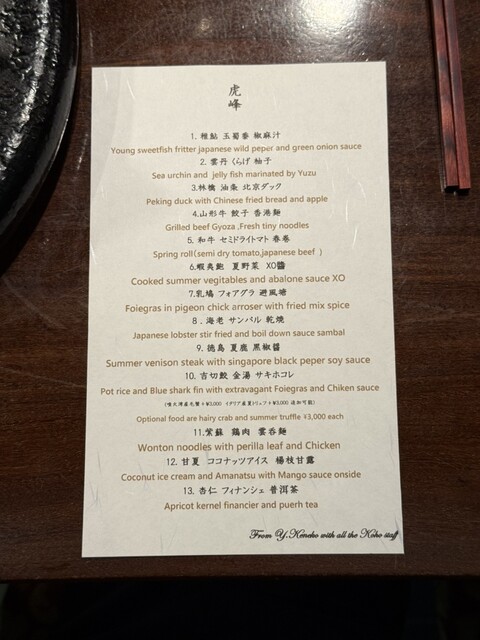 虎
峰
1. 稚鮎 玉蜀黍 椒麻汁
Young sweetfish fritter japanese wild peper and green onion sauce
2. 雲丹 くらげ 柚子
Sea urchin and jelly fish marinated by Yuzu
3.林檎 油条 北京ダック
Peking duck with Chinese fried bread and apple
4.山形牛 餃子 香港麺
Grilled beef Gyoza ,Fresh tiny noodles
5. 和牛 セミドライトマト 春巻
Spring roll(semi dry tomato,japanese beef )
6.蝦夷鮑 夏野菜 XO醬
Cooked summer vegitables and abalone sauce XO
7.乳鳩 フォアグラ 避風塘
Foiegras in pigeon chick arroser with fried mix spice
8 . 海老 サンバル 乾焼
Japanese lobster stir fried and boil down sauce sambal
9. 徳島 夏鹿 黒椒醬
Summer venison steak with singapore black peper soy sauce
10. 吉切鮫 金湯 サキホコレ
Pot rice and Blue shark fin with extravagant Foiegras and Chiken sauce
(噴火湾産毛蟹+¥3,000 イタリア産夏トリュフ+¥3,000 追加可能)
Optional food are hairy crab and summer truffle ¥3,000 each
11.紫蘇 鶏肉 雲呑麺
Wonton noodles with perilla leaf and Chicken
12. 甘夏 ココナッツアイス 楊枝甘露
Coconut ice cream and Amanatsu with Mango sauce onside
13. 杏仁 フィナンシェ 普洱茶
Apricot kernel financier and puerh tea
From Y.Koneho with all the Koho staff